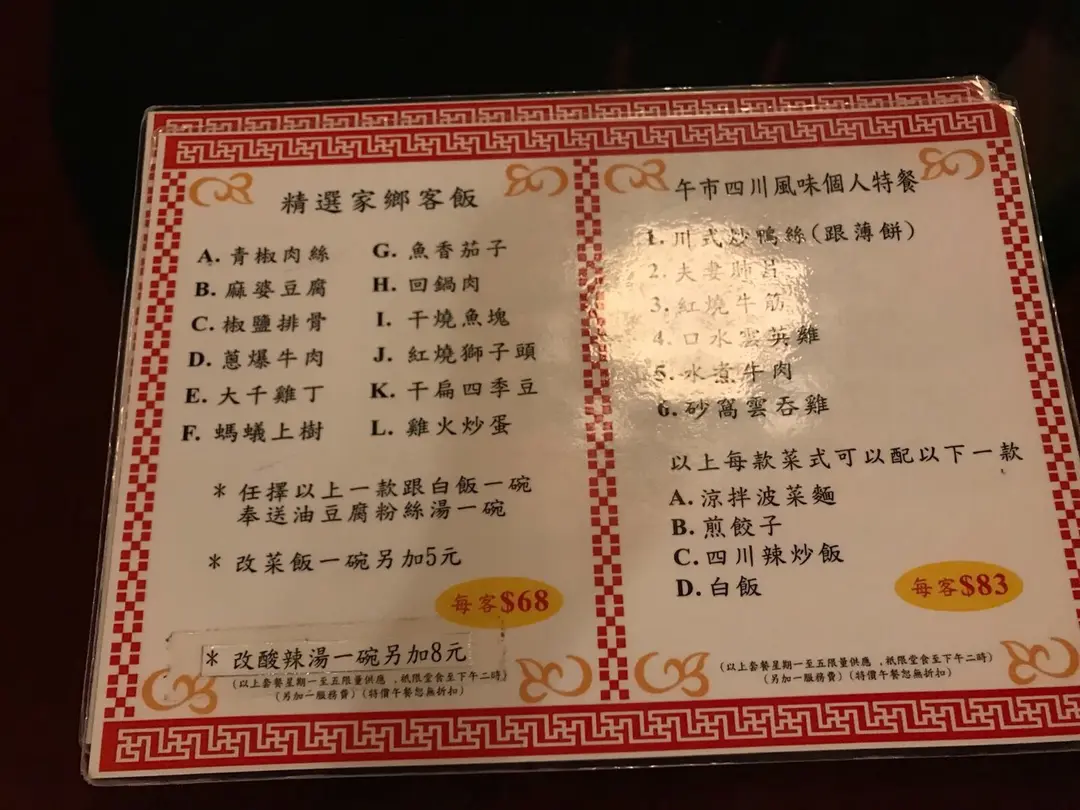 精選家鄉客飯
A. 青椒肉絲
B. 麻婆豆腐
C. 椒鹽排骨
D. 蔥爆牛肉
E. 大千雞丁
F. 螞蟻上樹
G. 魚香茄子
H. 回鍋肉
I. 干燒魚塊
J. 紅燒獅子頭
K. 干扁四季豆
L. 雞火炒蛋
* 任擇以上一款跟白飯一碗
奉送油豆腐粉絲湯一碗
* 改菜飯一碗另加5元
每客$68
* 改酸辣湯一碗另加8元
(以上套餐星期一至五限量供應、祇限堂食至下午二時)
(另加一服務費)(特價午餐恕無折扣)
午市四川風味個人特餐
1. 川式炒鴨絲(跟薄餅)
2. 夫妻肺片
3. 紅燒牛筋
4. 口水雲英雞
5. 水煮牛肉
6. 砂窩雲吞雞
以上每款菜式可以配以下一款
A. 涼拌波菜麵
B. 煎餃子
C. 四川辣炒飯
D. 白飯
每客$83
(以上套餐星期一至五限量供應、祇限堂食至下午二時)
(另加一服務費)(特價午餐恕無折扣)